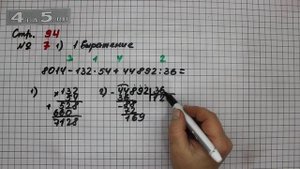 Стр. 94
№ 7 1) 1 Выражение
3 1 4 2
8014-132·54+44892:36=
1) 132
54
+ 528
660
7128
2) 44892 36
36 12
88
72
169